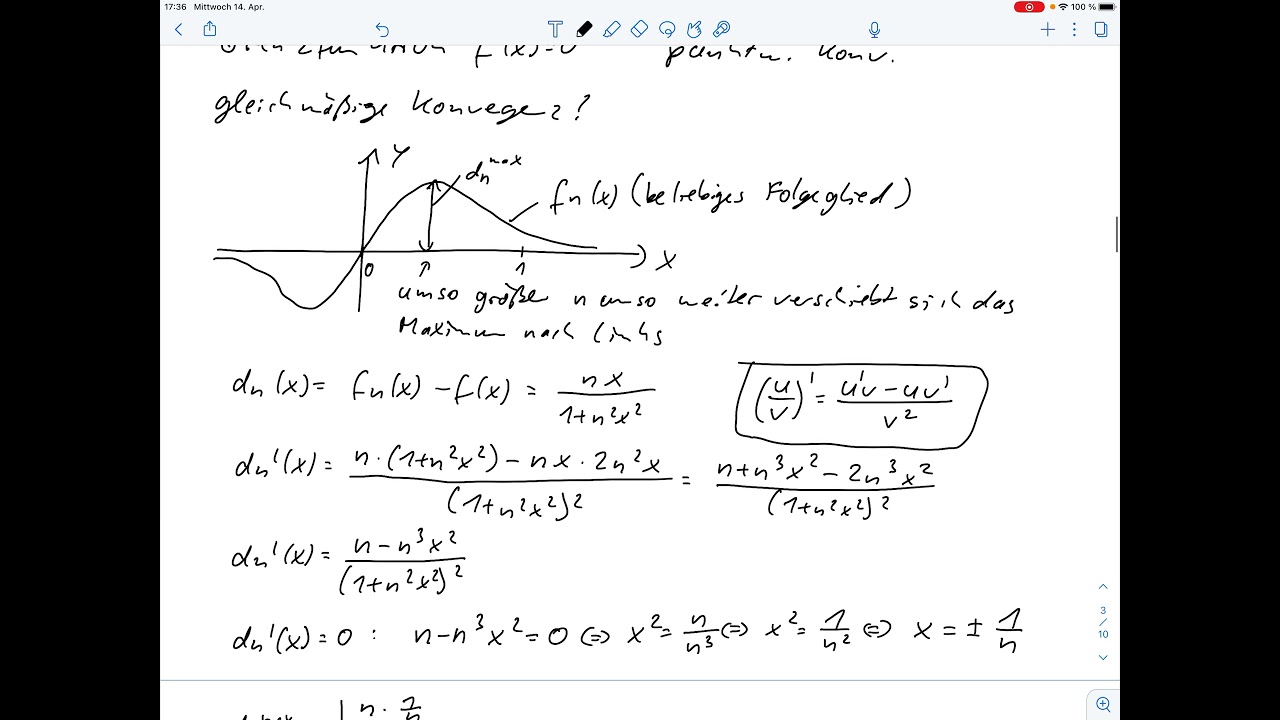 17:36 Mittwoch 14. Apr. 100 %
f(x)=0 punktw. konv.
gleichmäßige Konvegenz?
y
dₙᵐᵃˣ
fₙ(x) (beliebiges Folgeglied)
0 1 x
umso größer n umso weiter verschiebt sich das
Maximum nach links
dₙ(x) = fₙ(x) - f(x) = nx/(1+n²x²)
(u/v)' = (u'v - uv')/v²
dₙ'(x) = (n·(1+n²x²) - nx·2n²x)/(1+n²x²)² = (n+n³x² - 2n³x²)/(1+n²x²)²
dₙ'(x) = (n - n³x²)/(1+n²x²)²
3/10
dₙ'(x) = 0 : n - n³x² = 0 ⇔ x² = n/n³ ⇔ x² = 1/n² ⇔ x = ± 1/n
n · 1/n